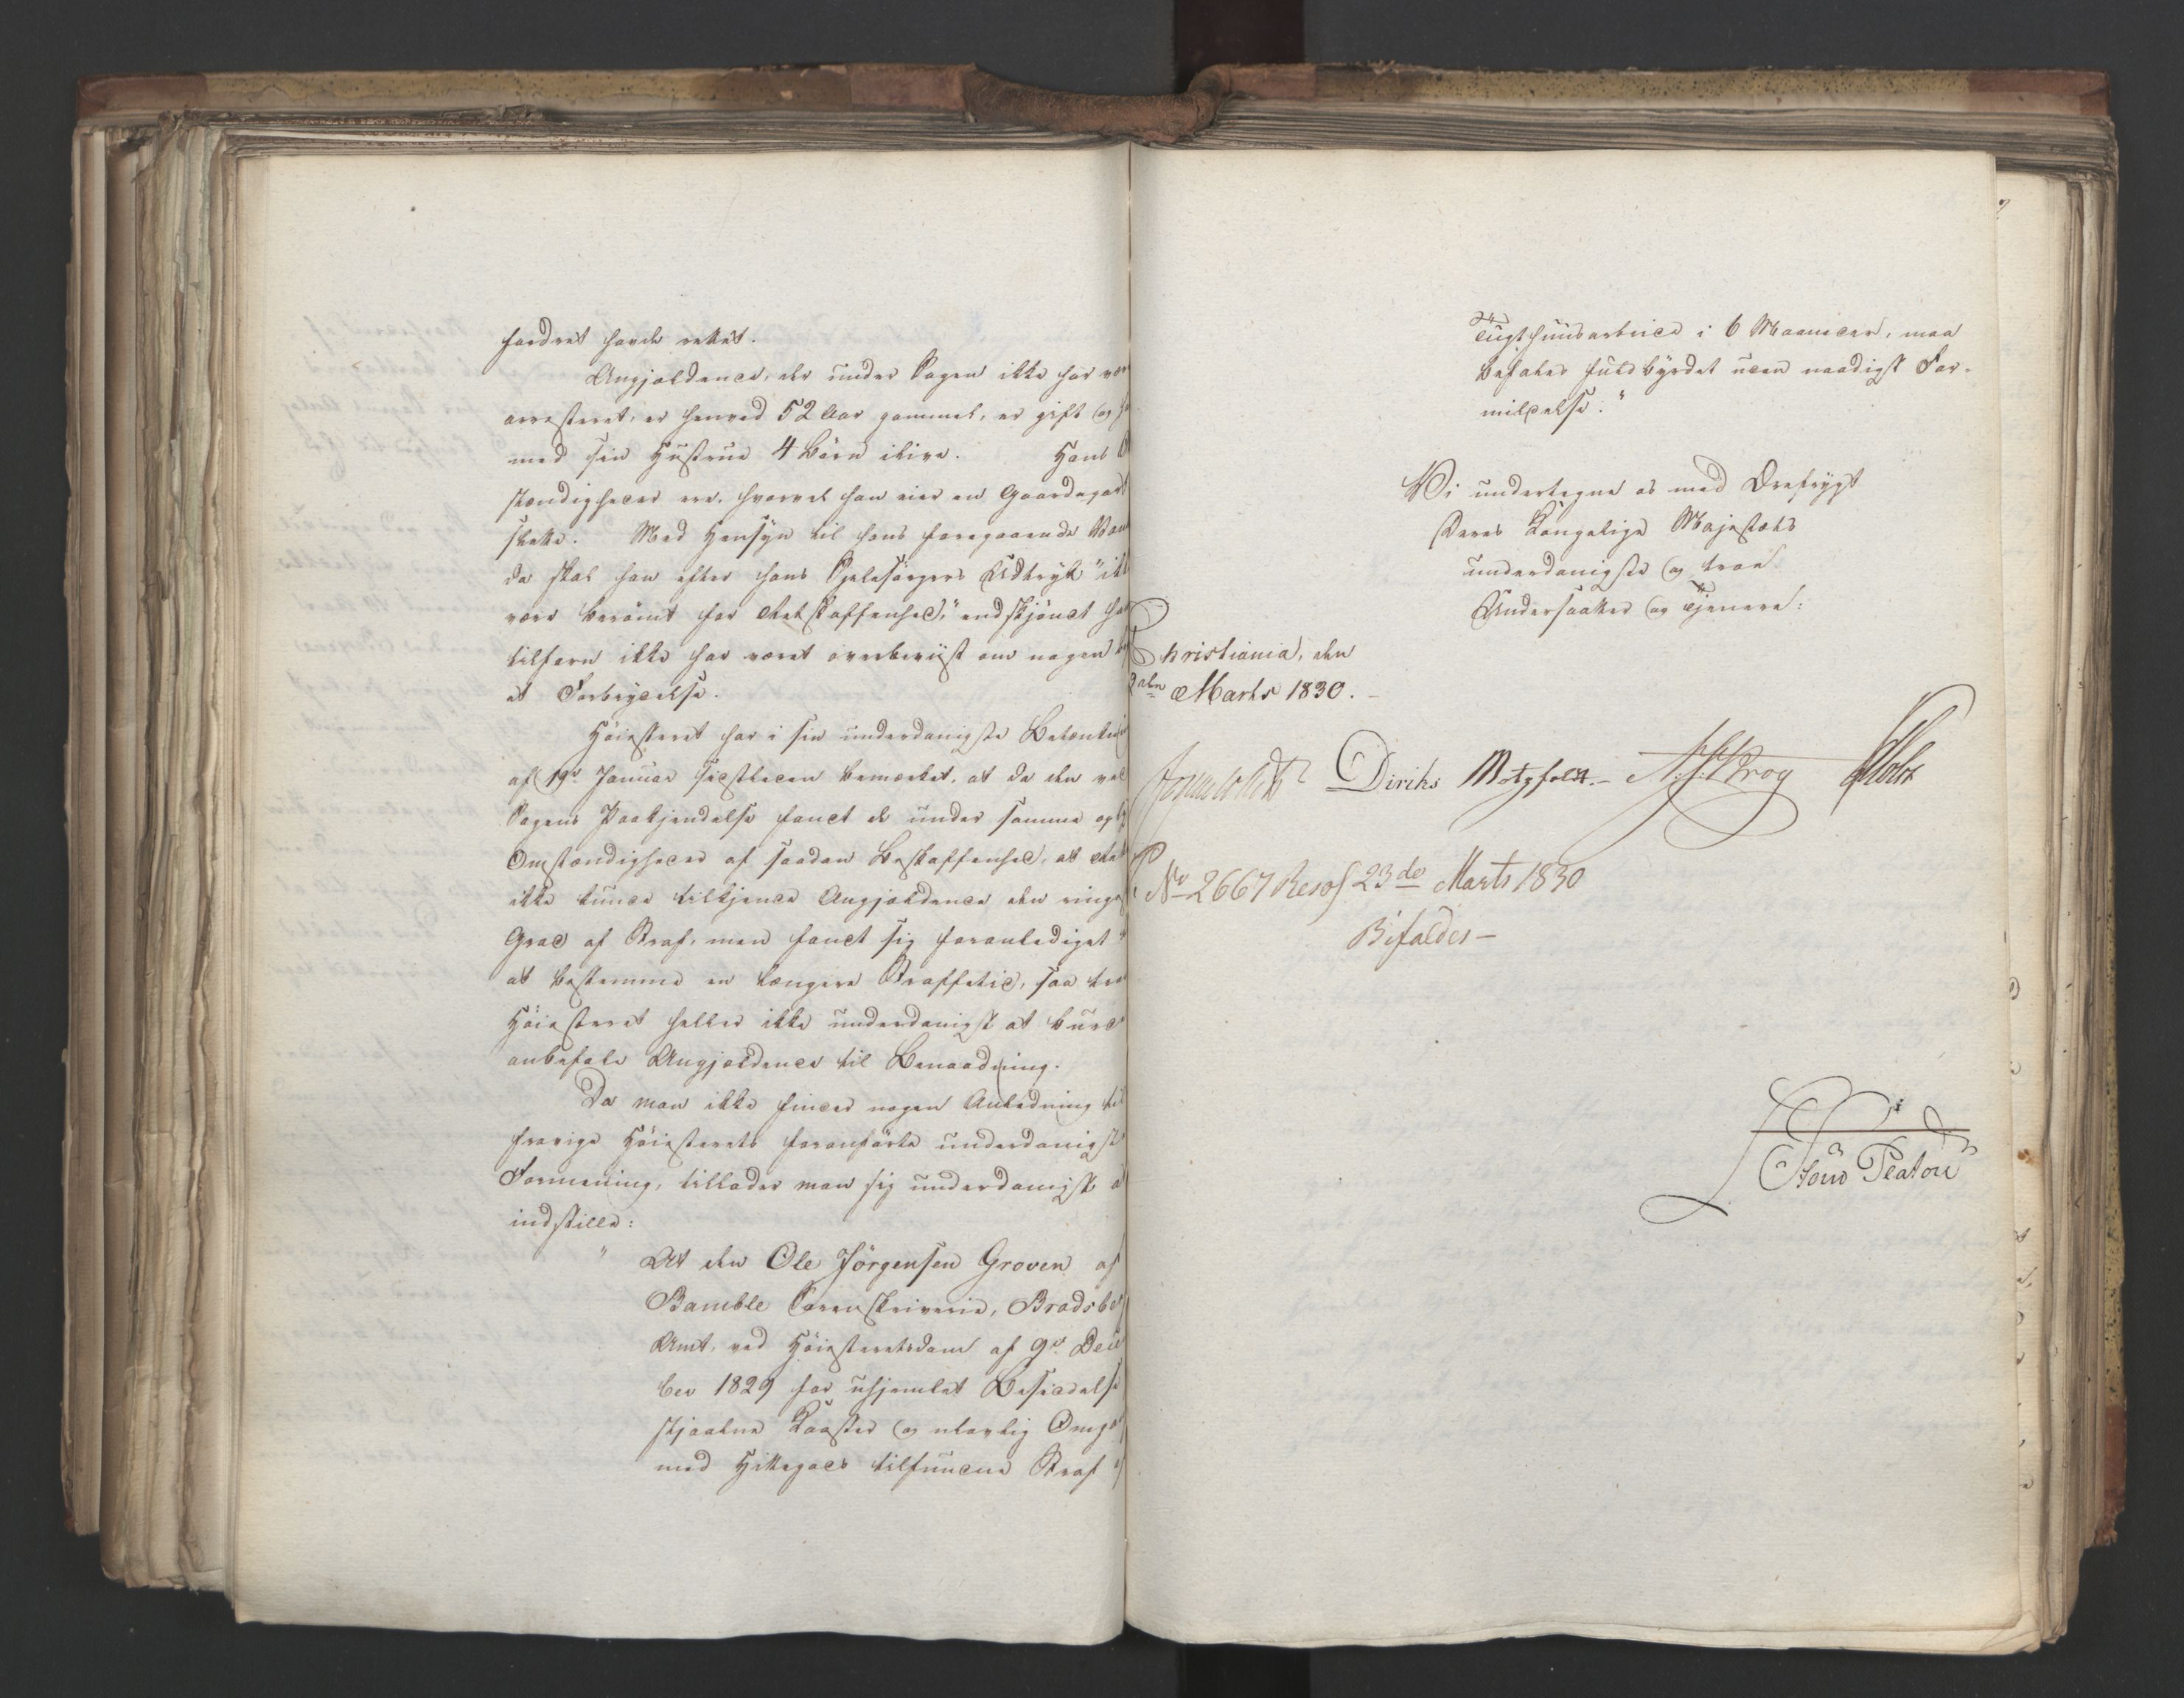 fordret havde rettet.
Angjeldende, der under Sagen ikke har vær
arresteret, er henved 52 Aar gammel, er gift og h
med sin Hustrue 4 Børn ilive. Hans
stændigheder ere, hvorvel han eier en Gaardepart
slette. Med Hensyn til hans foregaaende Van
da skal han efter hans Sjelesørgers Udtryk "ikk
være berømt for Retskaffenhed," endskjøndt ha
tilforn ikke har været overbeviist om nogen
et Forbrydelse.
Høiesteret har i sin underdanigste Betænkni
af 19de Januar sidstleden bemærket, at da den ved
Sagens Paakjendelse fandt de under samme opl
Omstændigheder af saadan Beskaffenhed, at det
ikke kunde tilkjende Angjeldende den ringe
Grad af Straf, men fandt sig foranlediget
at bestemme en længere Straffetid, saa tro
Høiesteret heller ikke underdanigst at burde
anbefale Angjeldende til Benaadning.
Da man ikke finder nogen Anledning til
fravige Høiesterets foranførte underdanigst
Formening, tillader man sig underdanigst a
indstille:
" At den Ole Jörgensen Groven af
Bamble Sorenskriverie, Bradsbe
Amt, ved Høiesteretsdom af 9de Dec
ber 1829 for uhjemlet Besiddelse
stjaalne Koster og ulovlig Omg
med Hittegods tilfundne Straf
Tugthuusarbeide i 6 Maaneder, maa
befales fuldbyrdet uden naadigst For-
mildelse."
Vi undertegne os med Ærefrygt
Deres Kongelige Majestæts
underdanigste og troe
Undersaatter og Tjenere:
Christiania, den
2den Marts 1830.
Diriks Motzfeldt. Krog Holst
No 2667 Resol 23de Marts 1830
Bifaldes
Platou